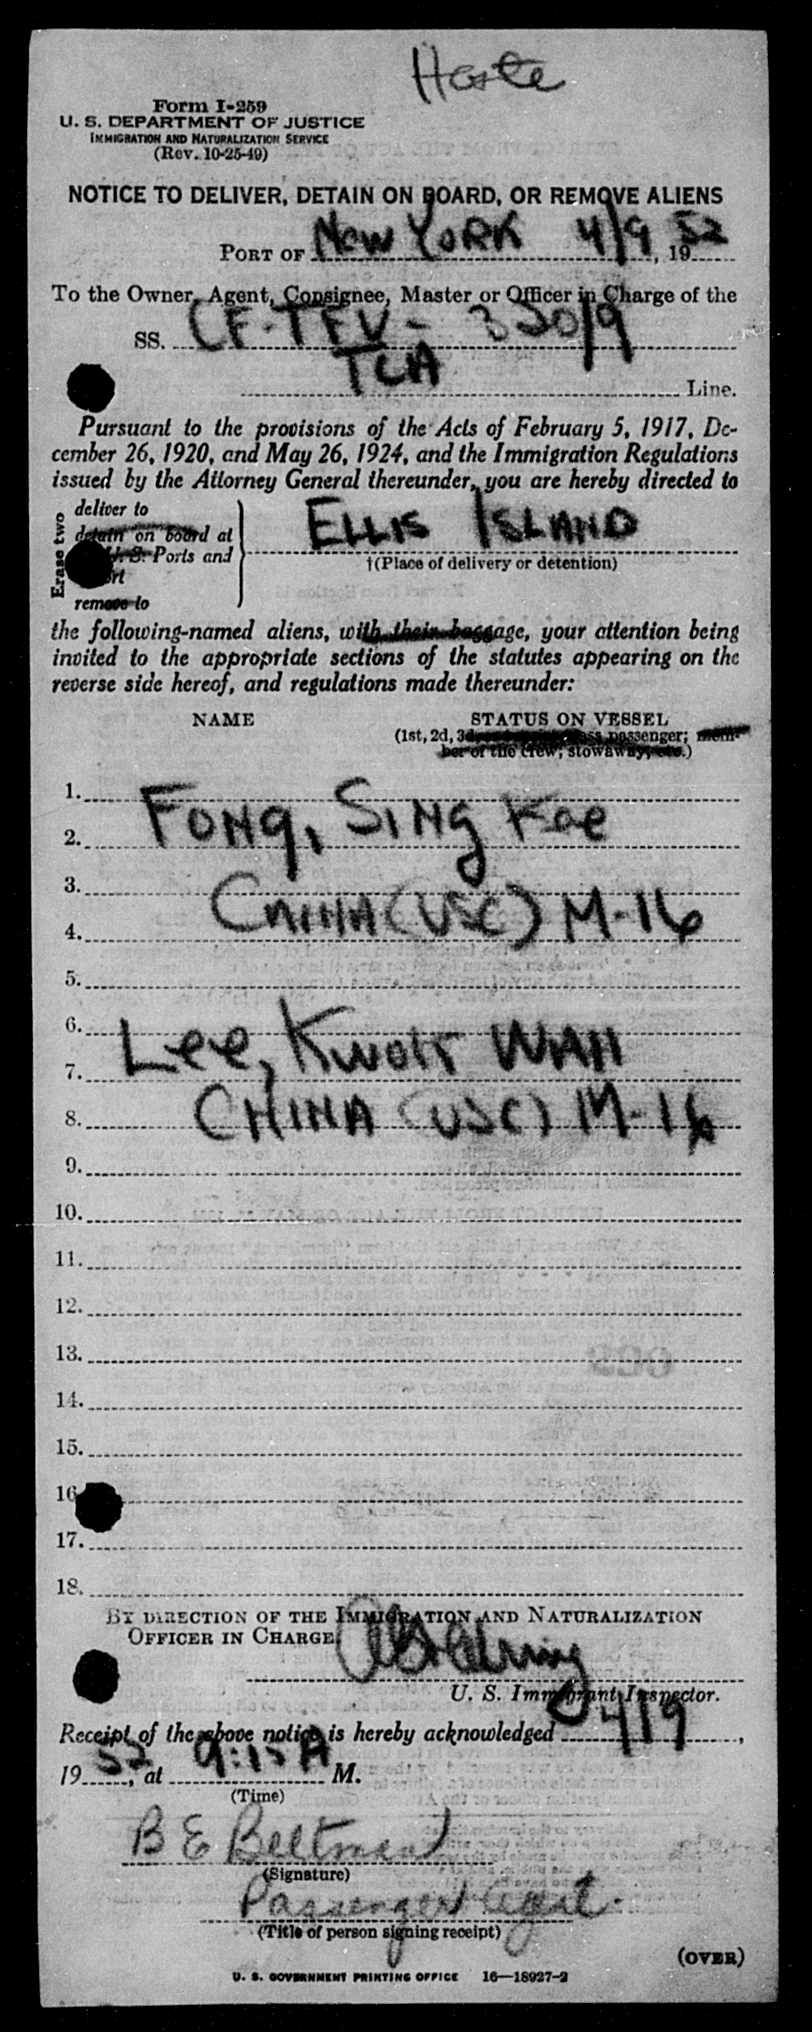 Haste
Form I-259
U. S. DEPARTMENT OF JUSTICE
IMMIGRATION AND NATURALIZATION SERVICE
(Rev. 10-25-49)
NOTICE TO DELIVER, DETAIN ON BOARD, OR REMOVE ALIENS
PORT OF New York 4/9, 1952
To the Owner, Agent, Consignee, Master or Officer in Charge of the
SS. CF-TFV- 350/9
TCA Line.
Pursuant to the provisions of the Acts of February 5, 1917, De-
cember 26, 1920, and May 26, 1924, and the Immigration Regulations
issued by the Attorney General thereunder, you are hereby directed to
Erase two
deliver to
detain on board at
U. S. Ports and
remove to
ELLIS ISLAND
†(Place of delivery or detention)
the following-named aliens, with their baggage, your attention being
invited to the appropriate sections of the statutes appearing on the
reverse side hereof, and regulations made thereunder:
NAME STATUS ON VESSEL
(1st, 2d, 3d, class passenger; mem-
ber of the crew; stowaway, etc.)
1.
2. FONG, SING Kee
3.
4. CHINA (USC) M-16
5.
6.
7. Lee, KWOK WAH
8. CHINA (USC) M-16
9.
10.
11.
12.
13.
14.
15.
16.
17.
18.
BY DIRECTION OF THE IMMIGRATION AND NATURALIZATION
OFFICER IN CHARGE
U. S. Immigrant Inspector.
Receipt of the above notice is hereby acknowledged 4/9,
1952, at 9:15 A M.
(Time)
B E Beltman
(Signature)
Passenger Agent.
(Title of person signing receipt)
(OVER)
U. S. GOVERNMENT PRINTING OFFICE 16—18927-2